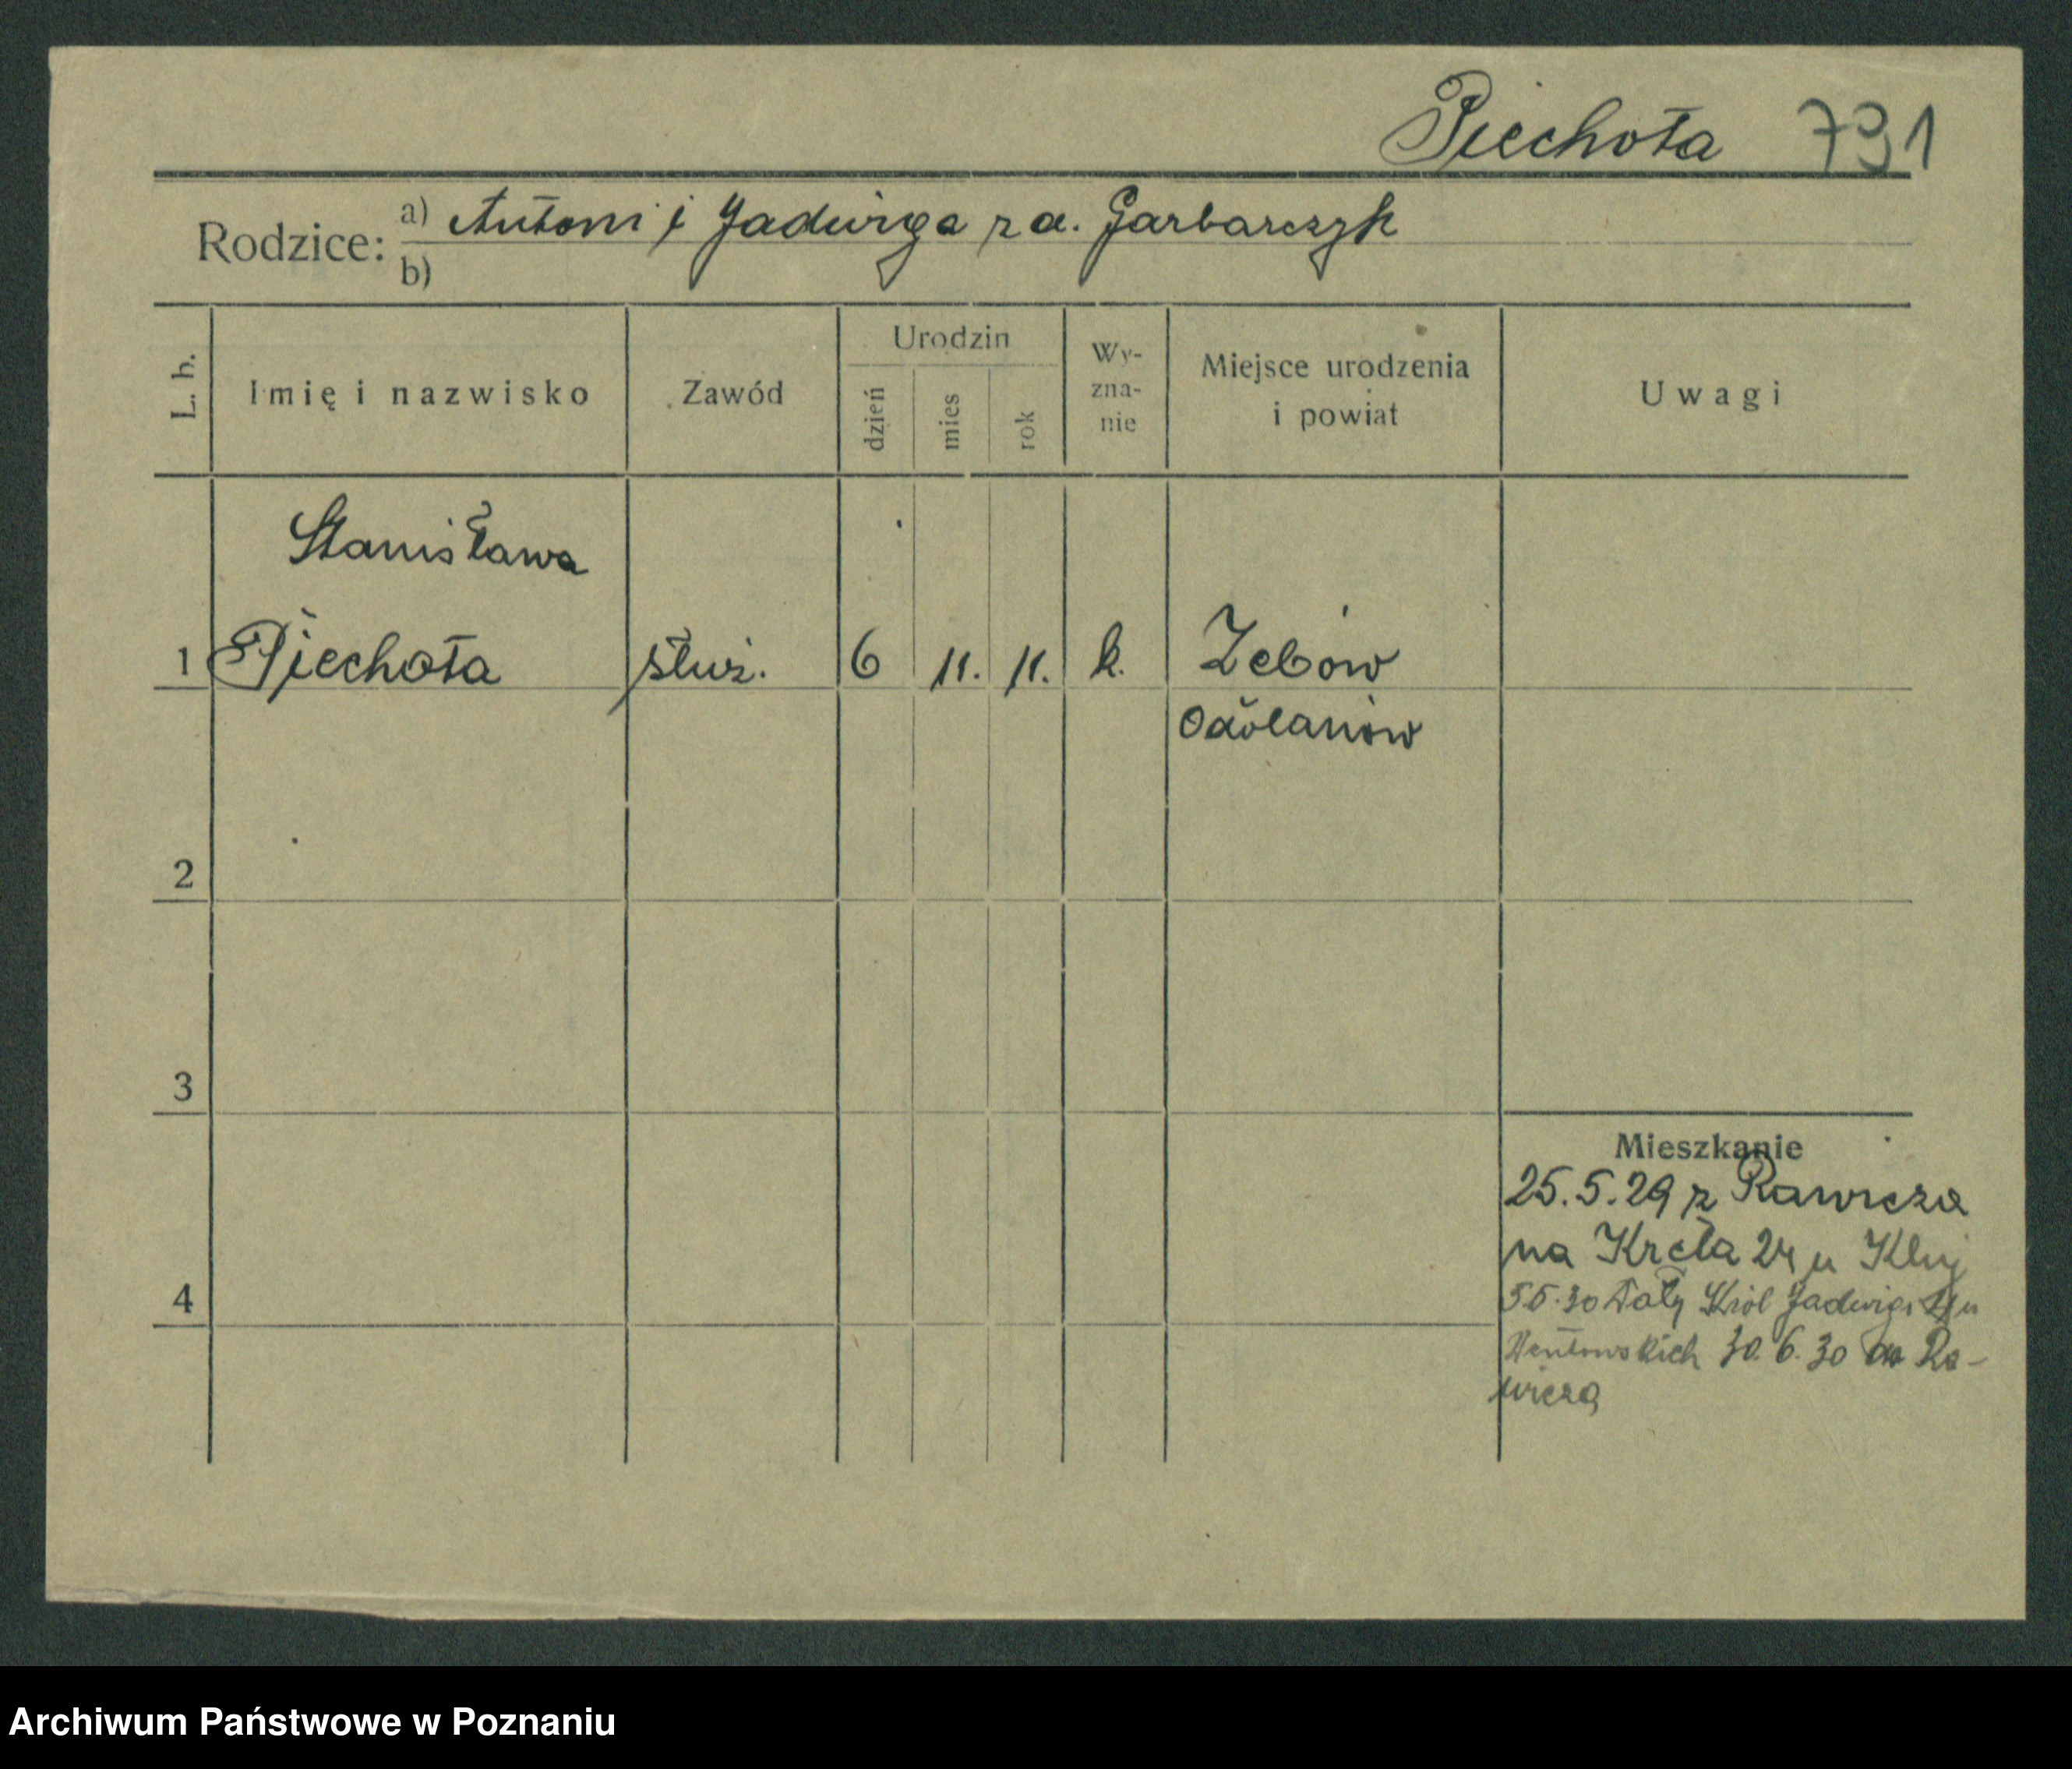 Piechota 791
Rodzice: a) Antoni i Jadwiga z d. Garbarczyk
b)
L. b. Imię i nazwisko Zawód Urodzin dzień mies rok Wy-zna-nie Miejsce urodzenia i powiat Uwagi
Stanisława
1 Piechota służ. 6 11. 11. k. Zebów
Odolanów
2
3
Mieszkanie
25.5.29 z Rawicza
na Kręta 24 u
4
30 Król Jadwigi u
30.6.30 do Ra-
wicza
Archiwum Państwowe w Poznaniu